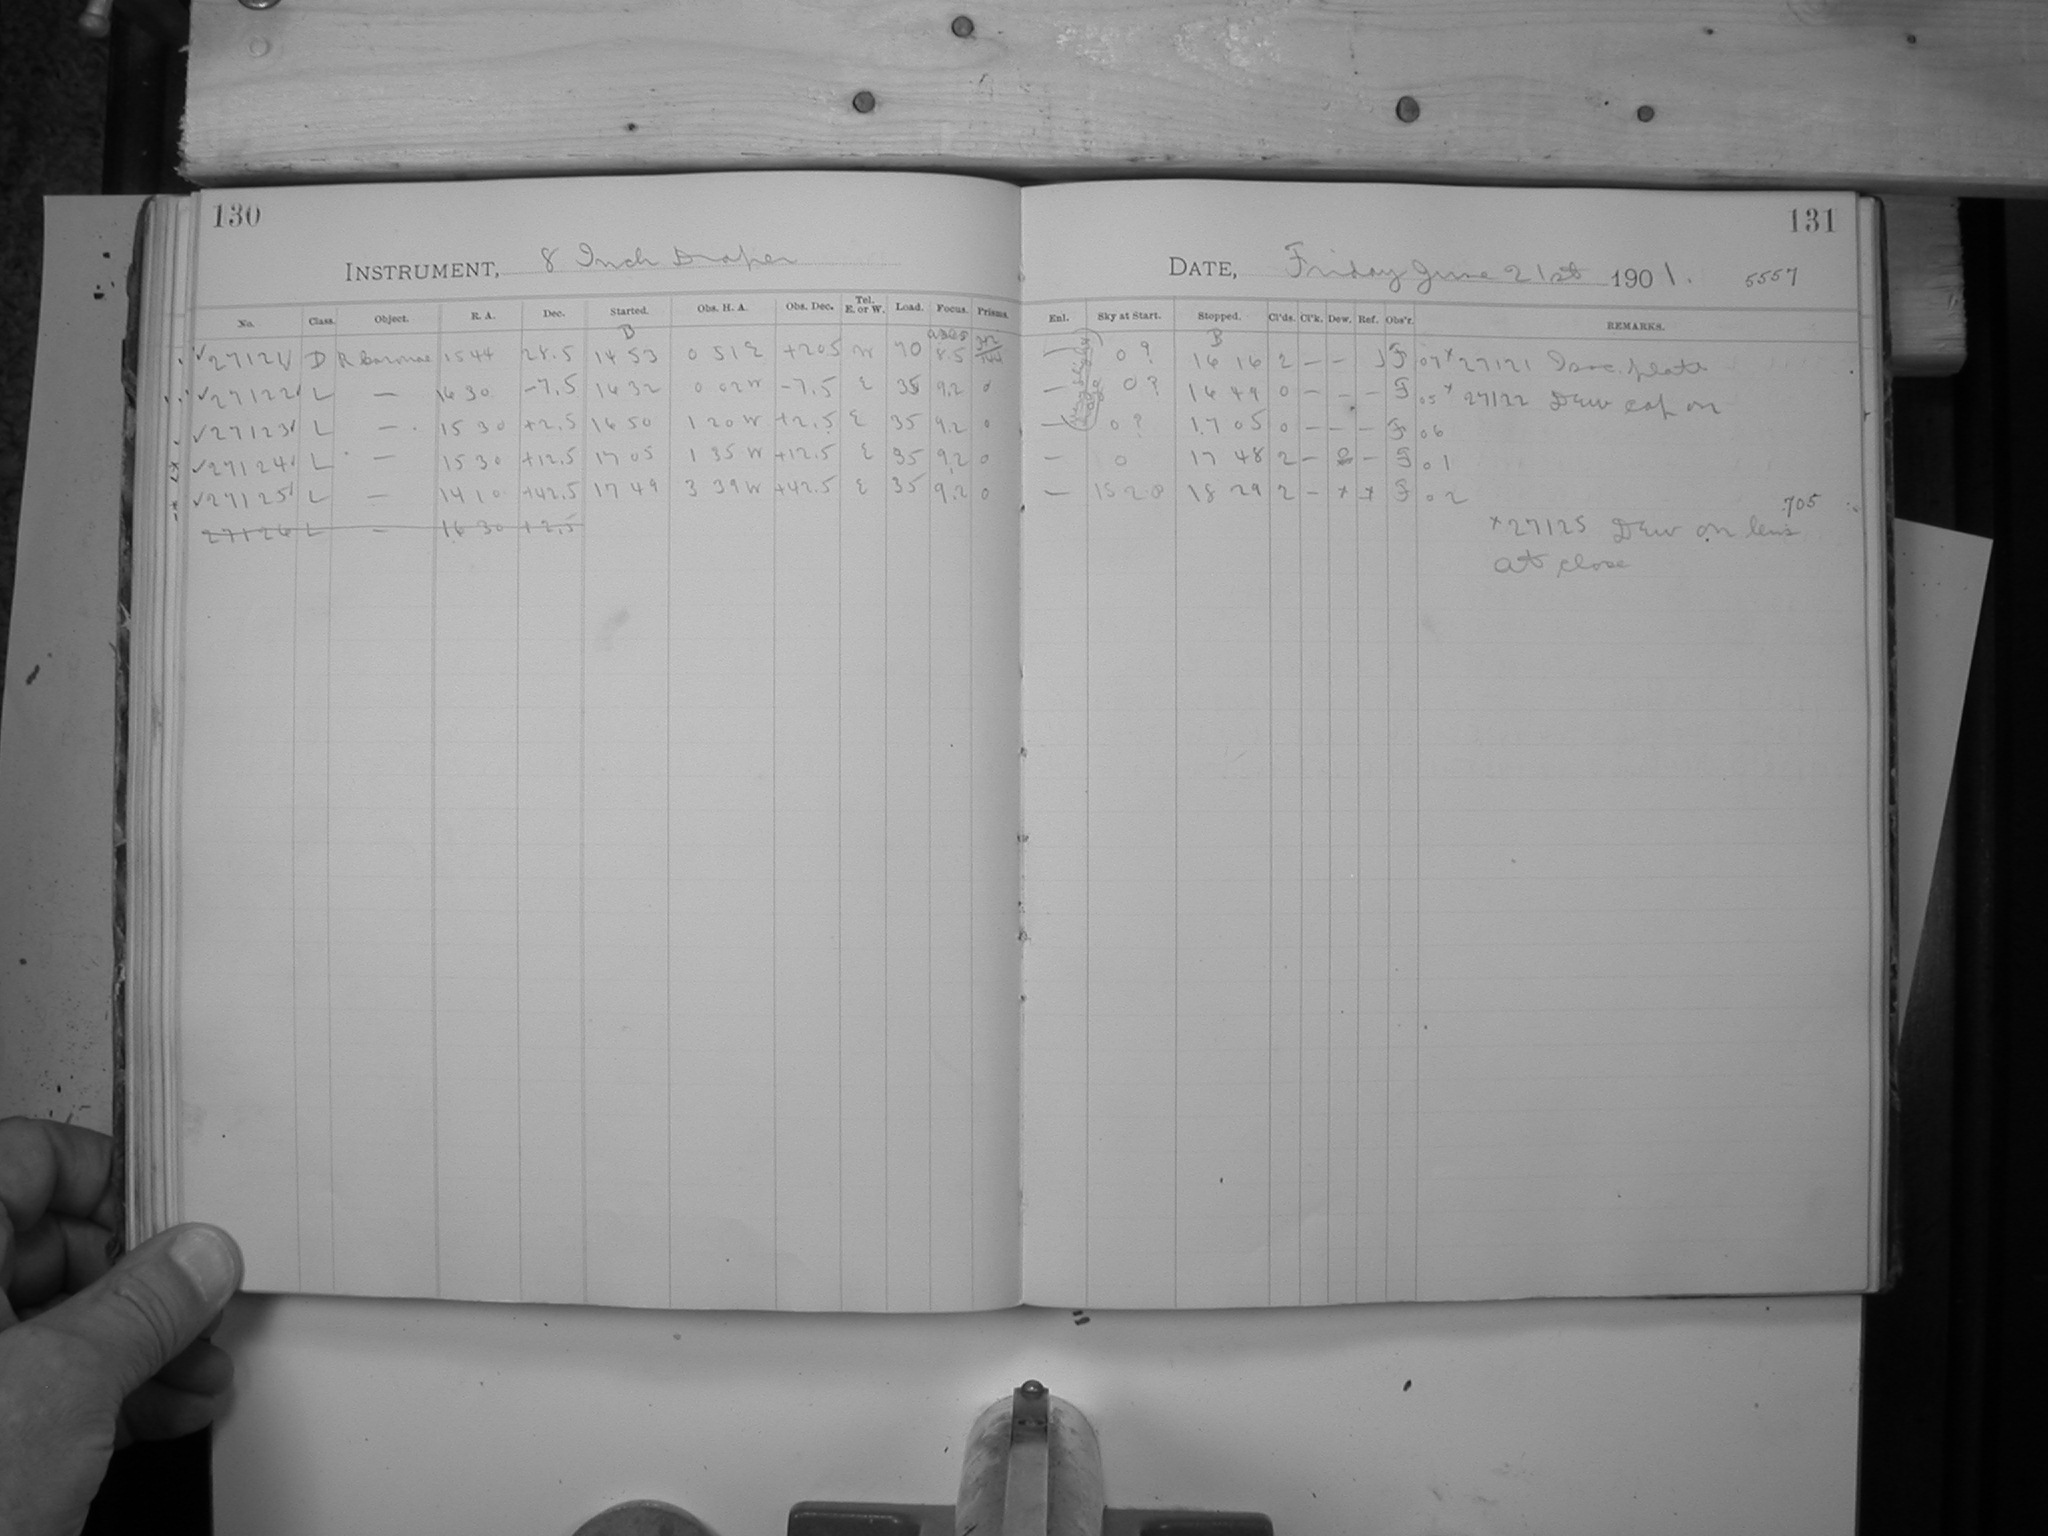 130
INSTRUMENT, 8 Inch Draper
No. Class. Object. R. A. Dec. Started. Obs. H. A. Obs. Dec. Tel. E. or W. Load. Focus. Prisms.
B
27121 D R Coronae 15 44 28.5 14 53 0 51 E +20.5 W 70 8.5
27122 L — 16 30 -7.5 16 32 0 02 W -7.5 E 35 9.2 0
27123 L — 15 30 +2.5 16 50 1 20 W +2.5 E 35 9.2 0
27124 L — 15 30 +12.5 17 05 1 35 W +12.5 E 35 9.2 0
27125 L — 14 10 +42.5 17 49 3 39 W +42.5 E 35 9.2 0
27126 L — 16 30 +2.5
131
DATE, Friday June 21st 1901. 5557
Enl. Sky at Start. Stopped. Cl'ds. Cl'k. Dew. Ref. Obs'r. REMARKS.
B
— 0 ? 16 16 2 — — J F 07 x 27121 Isoc. plate
— 0 ? 16 49 0 — — — F 05 x 27122 Dew cap on
— 0 ? 17 05 0 — — — F 06
— 0 17 48 2 — — F 01
— 15 20 18 29 2 — x x F 02
705
x 27125 Dew on lens
at close